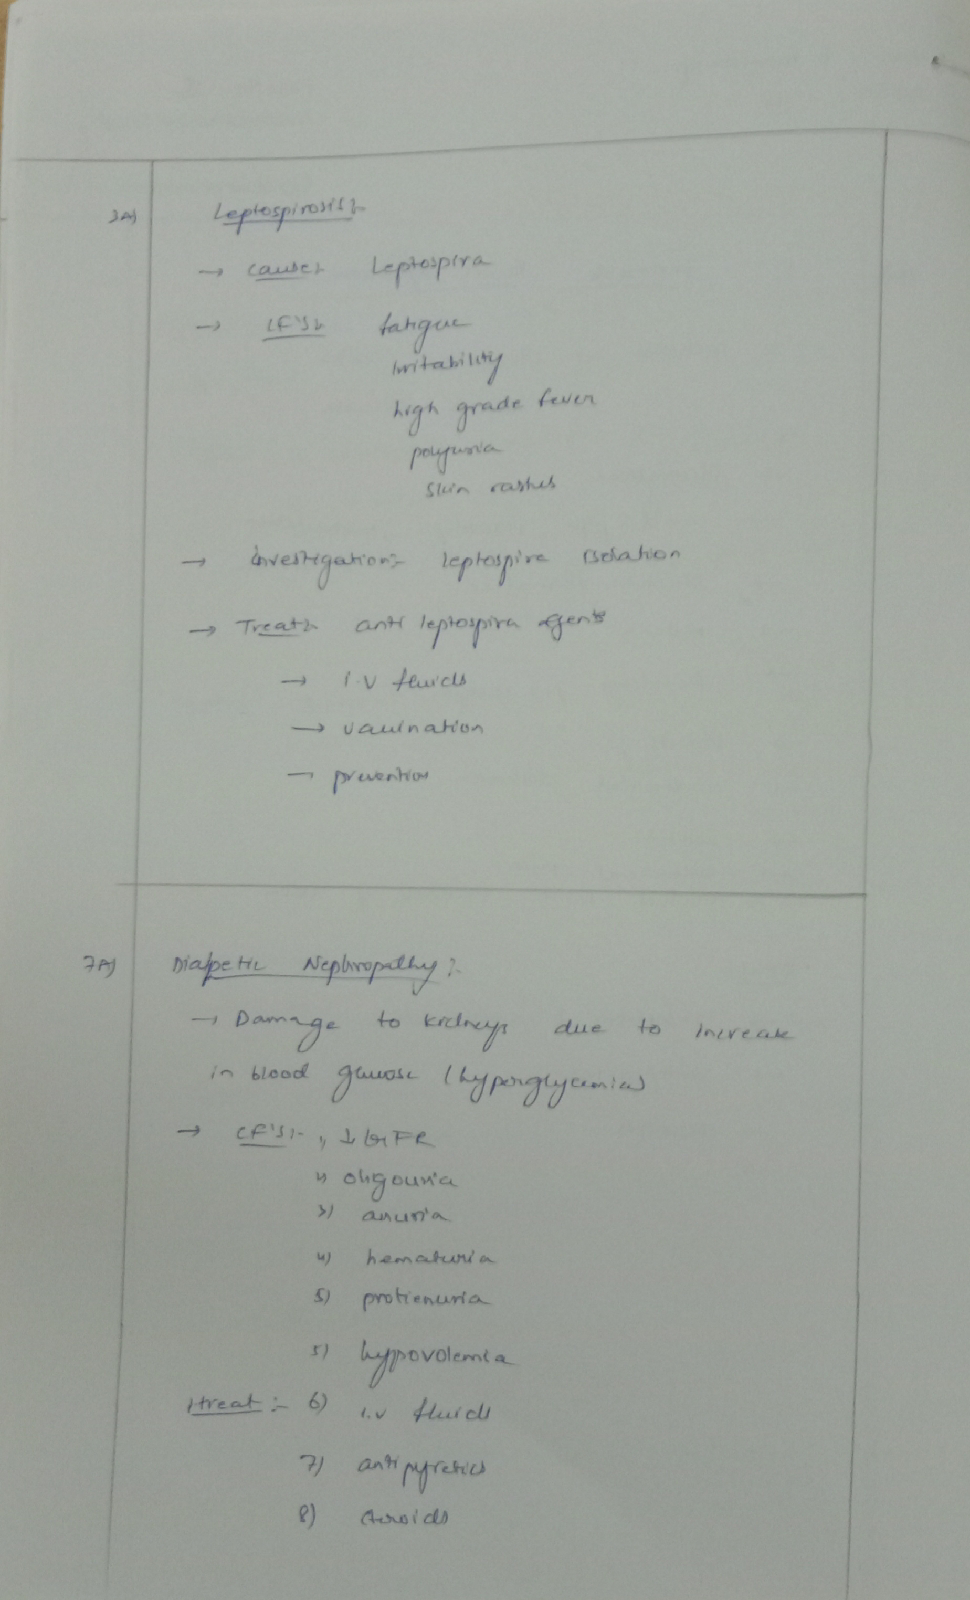 3A) Leptospirosis:-
→ cause:- Leptospira
→ CF's:- fatigue
irritability
high grade fever
polyuria
skin rashes
→ investigation:- leptospira isolation
→ Treat:- anti leptospira agents
→ I.V fluids
→ vaccination
→ prevention
7A) Diabetic Nephropathy:-
→ Damage to kidneys due to increase
in blood glucose (hyperglycemia)
→ CF's:- 1) ↓ GFR
2) oligouria
3) anuria
4) hematuria
5) protienuria
5) hypovolemia
treat:- 6) I.V fluids
7) antipyretics
8) steroids